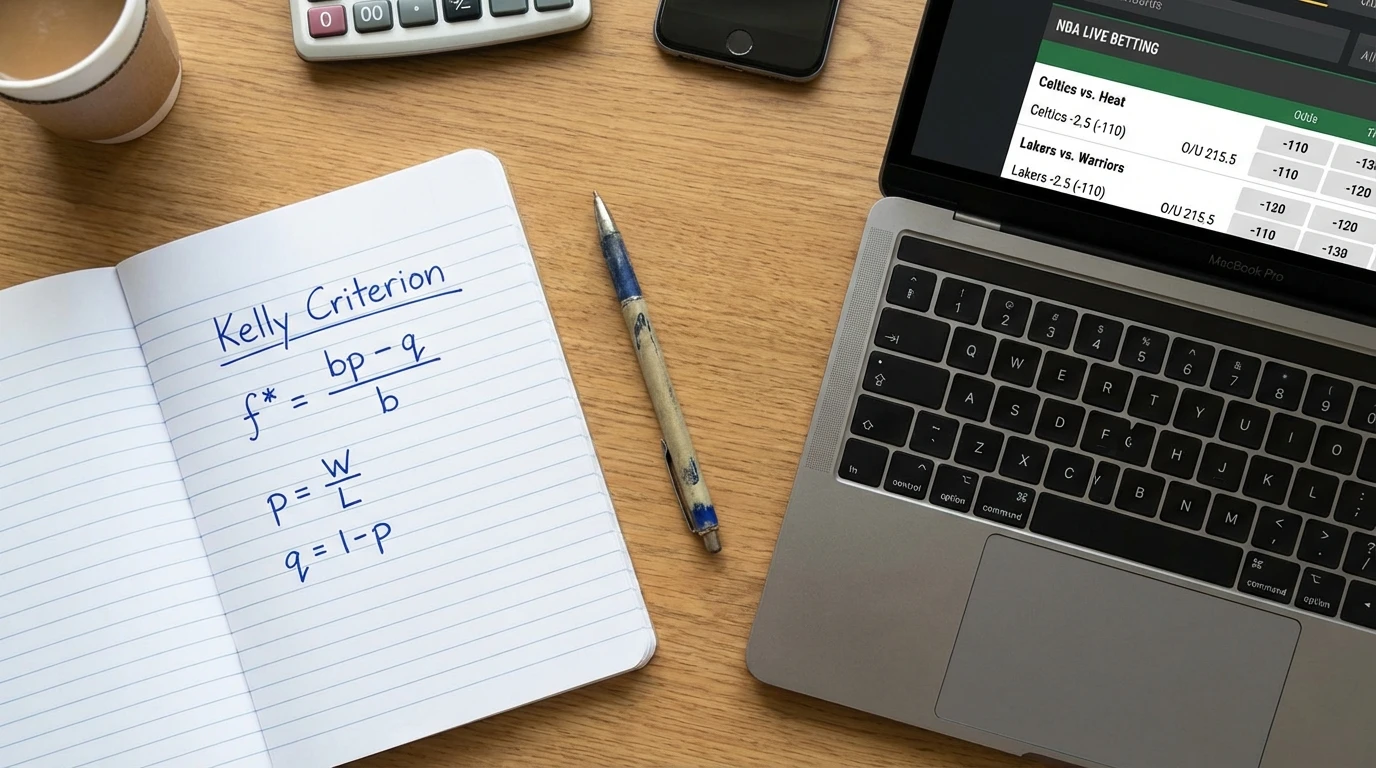 0 00 .
Kelly Criterion
f* = bp - q / b
p = W / L
q = 1 - p
NBA LIVE BETTING
Odds
Celtics vs. Heat
Celtics -2,5 (-110)
O/U 215.5
-110
-110
-120
Lakers vs. Warriors
Lakers -2.5 (-110)
O/U 215.5
-120
-120
-110
-130
MacBook Pro
! 1
@ 2
3
$ 4
% 5
^ 6
& 7
* 8
( 9
Q W E R T Y U I O
A S D F G H J K L : ;
Z X C V B N M < , > . ? /
control option command
command option